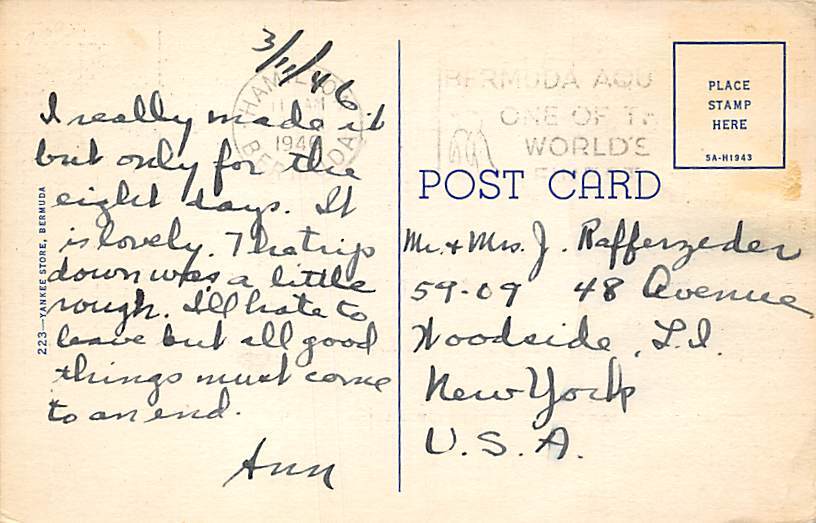 3/11/46
HAMILTON
11 AM
1946
BERMUDA
I really made it
but only for the
eight days. It
is lovely. The trip
down was a little
rough. I'll hate to
leave but all good
things must come
to an end.
Ann
223—YANKEE STORE, BERMUDA
BERMUDA AQU
ONE OF TH
WORLD'S
PLACE
STAMP
HERE
5A-H1943
POST CARD
Mr. + Mrs. J. Rafferzeder
59-09 48 Avenue
Woodside, L.I.
New York
U.S.A.